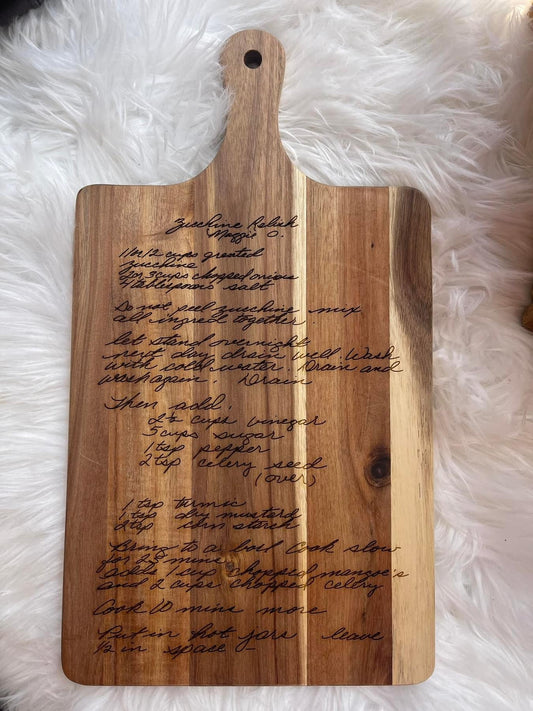 Zucchine Relish
Maggie O.
11 or 12 cups grated
zucchine
2 or 3 cups chopped onions
4 tablespoons salt
Do not peel zucchine mix
all ingred together.
let stand overnight
next day drain well. Wash
with cold water. Drain and
wash again. Drain
Then add.
2½ cups vinegar
5 cups sugar
1 tsp pepper
2 tsp celery seed
(over)
1 tsp turmic
1 tsp dry mustard
2 tsp corn starch
Bring to a boil Cook slow
for 25 mins
Add 1 cup chopped mangoe's
and 2 cups chopped celery
Cook 10 mins more
Put in hot jars leave
½ in space –